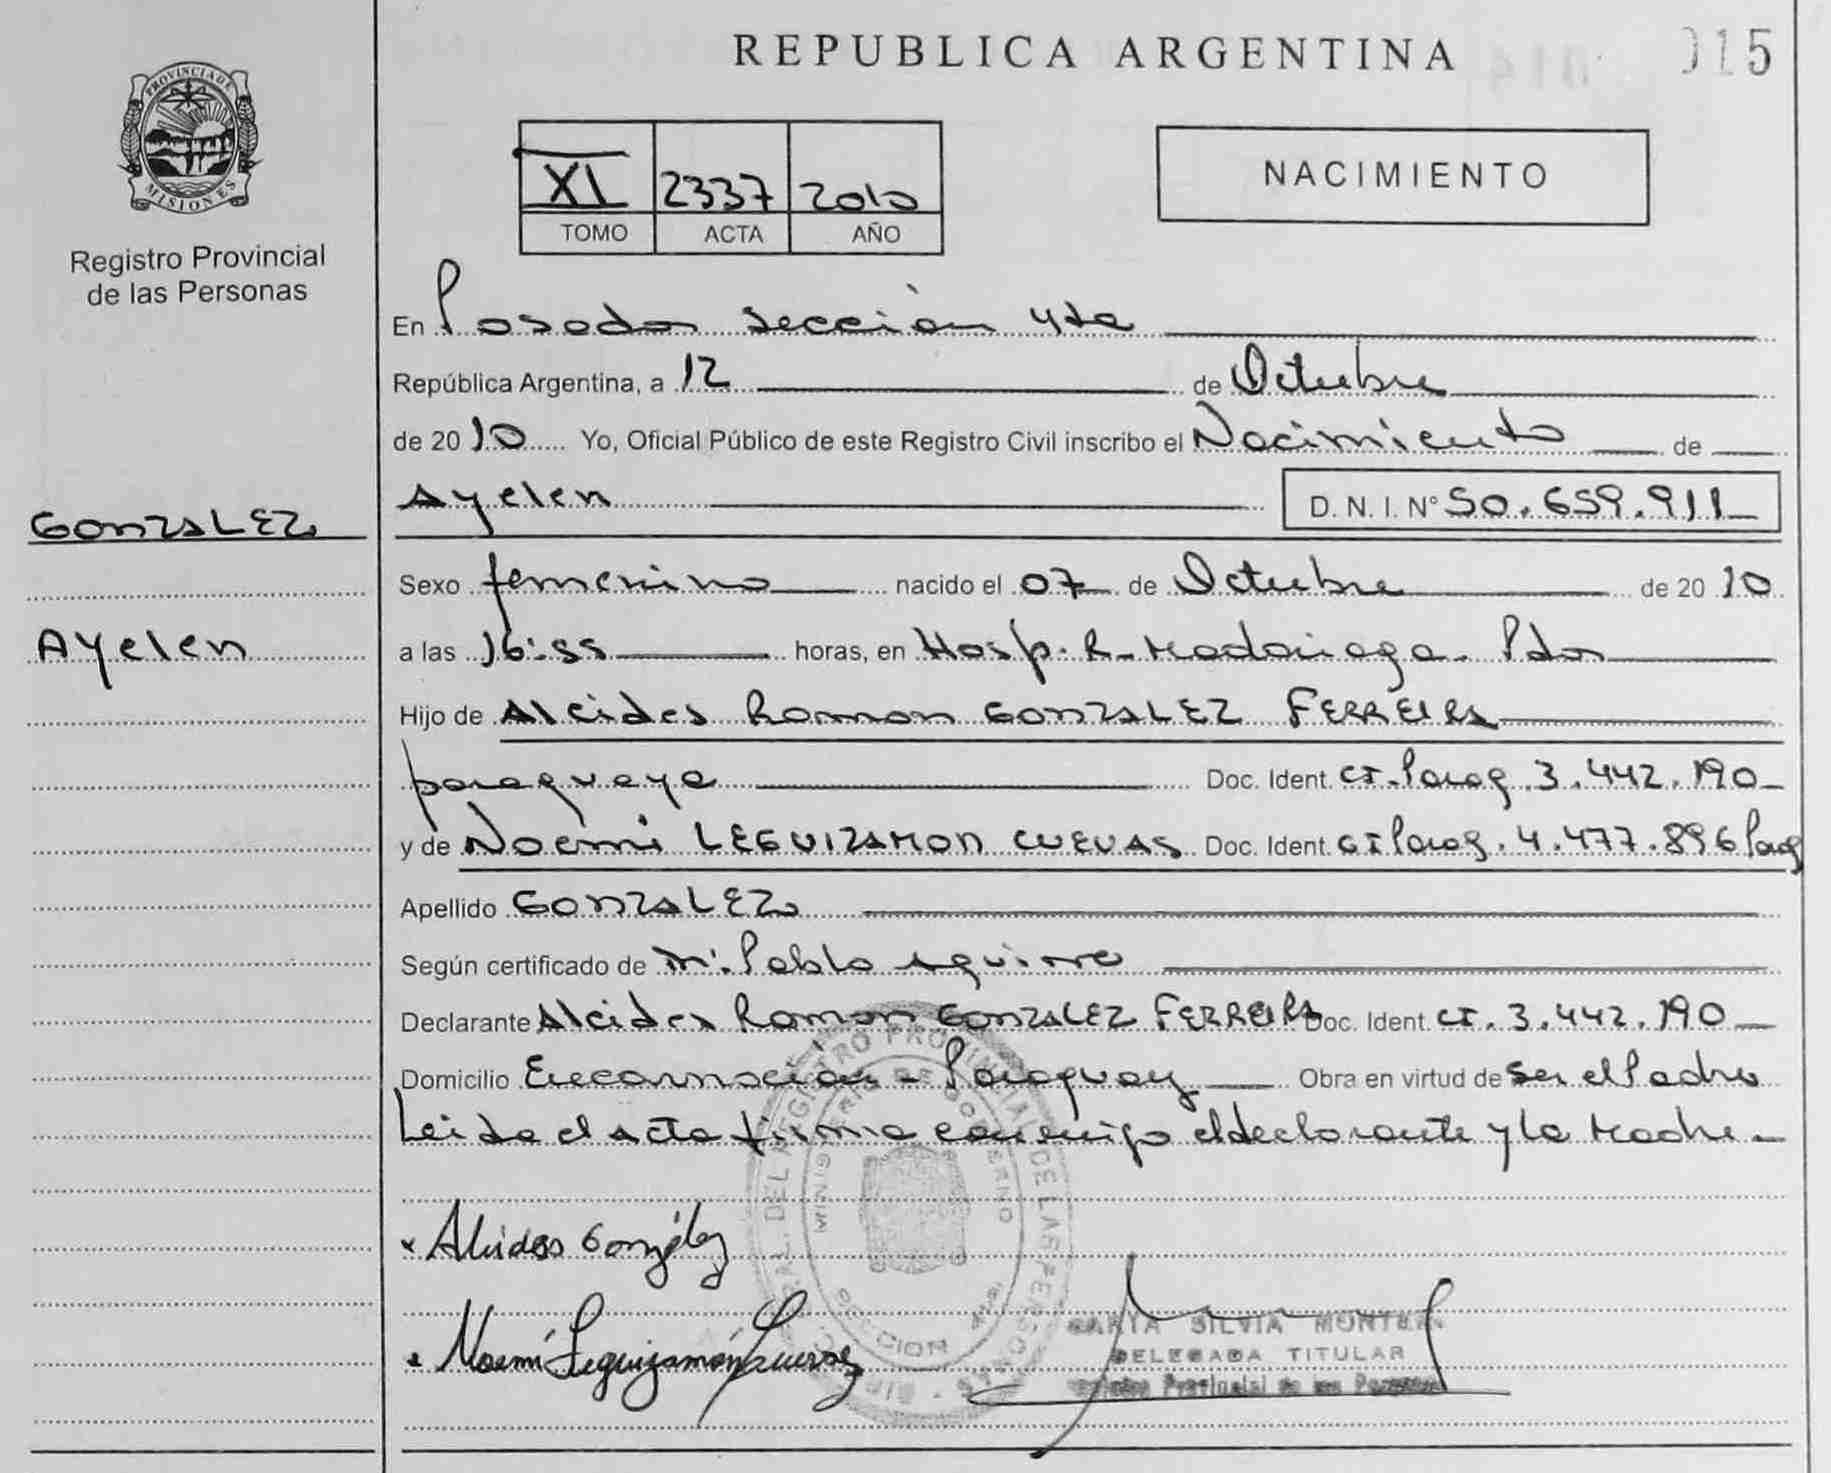 REPUBLICA ARGENTINA
015
PROVINCIA DE MISIONES
Registro Provincial
de las Personas
XI 2337 2010
TOMO ACTA AÑO
NACIMIENTO
En Posadas sección 4ta
República Argentina, a 12 de Octubre
de 2010 Yo, Oficial Público de este Registro Civil inscribo el Nacimiento de
Ayelen D. N. I. Nº 50.659.911
GONZALEZ
Sexo femenino nacido el 07 de Octubre de 2010
Ayelen
a las 16:55 horas, en Hosp. R. Madariaga - Pdas
Hijo de Alcides Ramon GONZALEZ FERREIRA
paraguaya Doc. Ident. CI. Parag. 3.442.190
y de Noemi LEGUIZAMON CUEVAS Doc. Ident. CI Parag. 4.477.896 Parag
Apellido GONZALEZ
Según certificado de Pablo Aguirre
Declarante Alcides Ramon GONZALEZ FERREIRA Doc. Ident. CI. 3.442.190
Domicilio Encarnación - Paraguay Obra en virtud de ser el Padre
Leida el acta firma conmigo el declarante y la Madre
Alcides González
Noemí Leguizamón Cuevas
SILVIA
DELEGADA TITULAR
Registro Provincial de las Personas